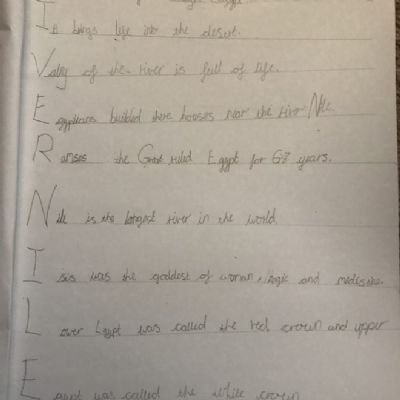 It brings life into the desert.
Vally of the river is full of life.
Egyptians builded there houses near the river Nile
Ramses the Great ruled Egypt for 67 years.
Nile is the longest river in the world.
Isis was the goddest of woman, magic and medicine.
Lower Egypt was called the red crown and upper
Egypt was called the white crown